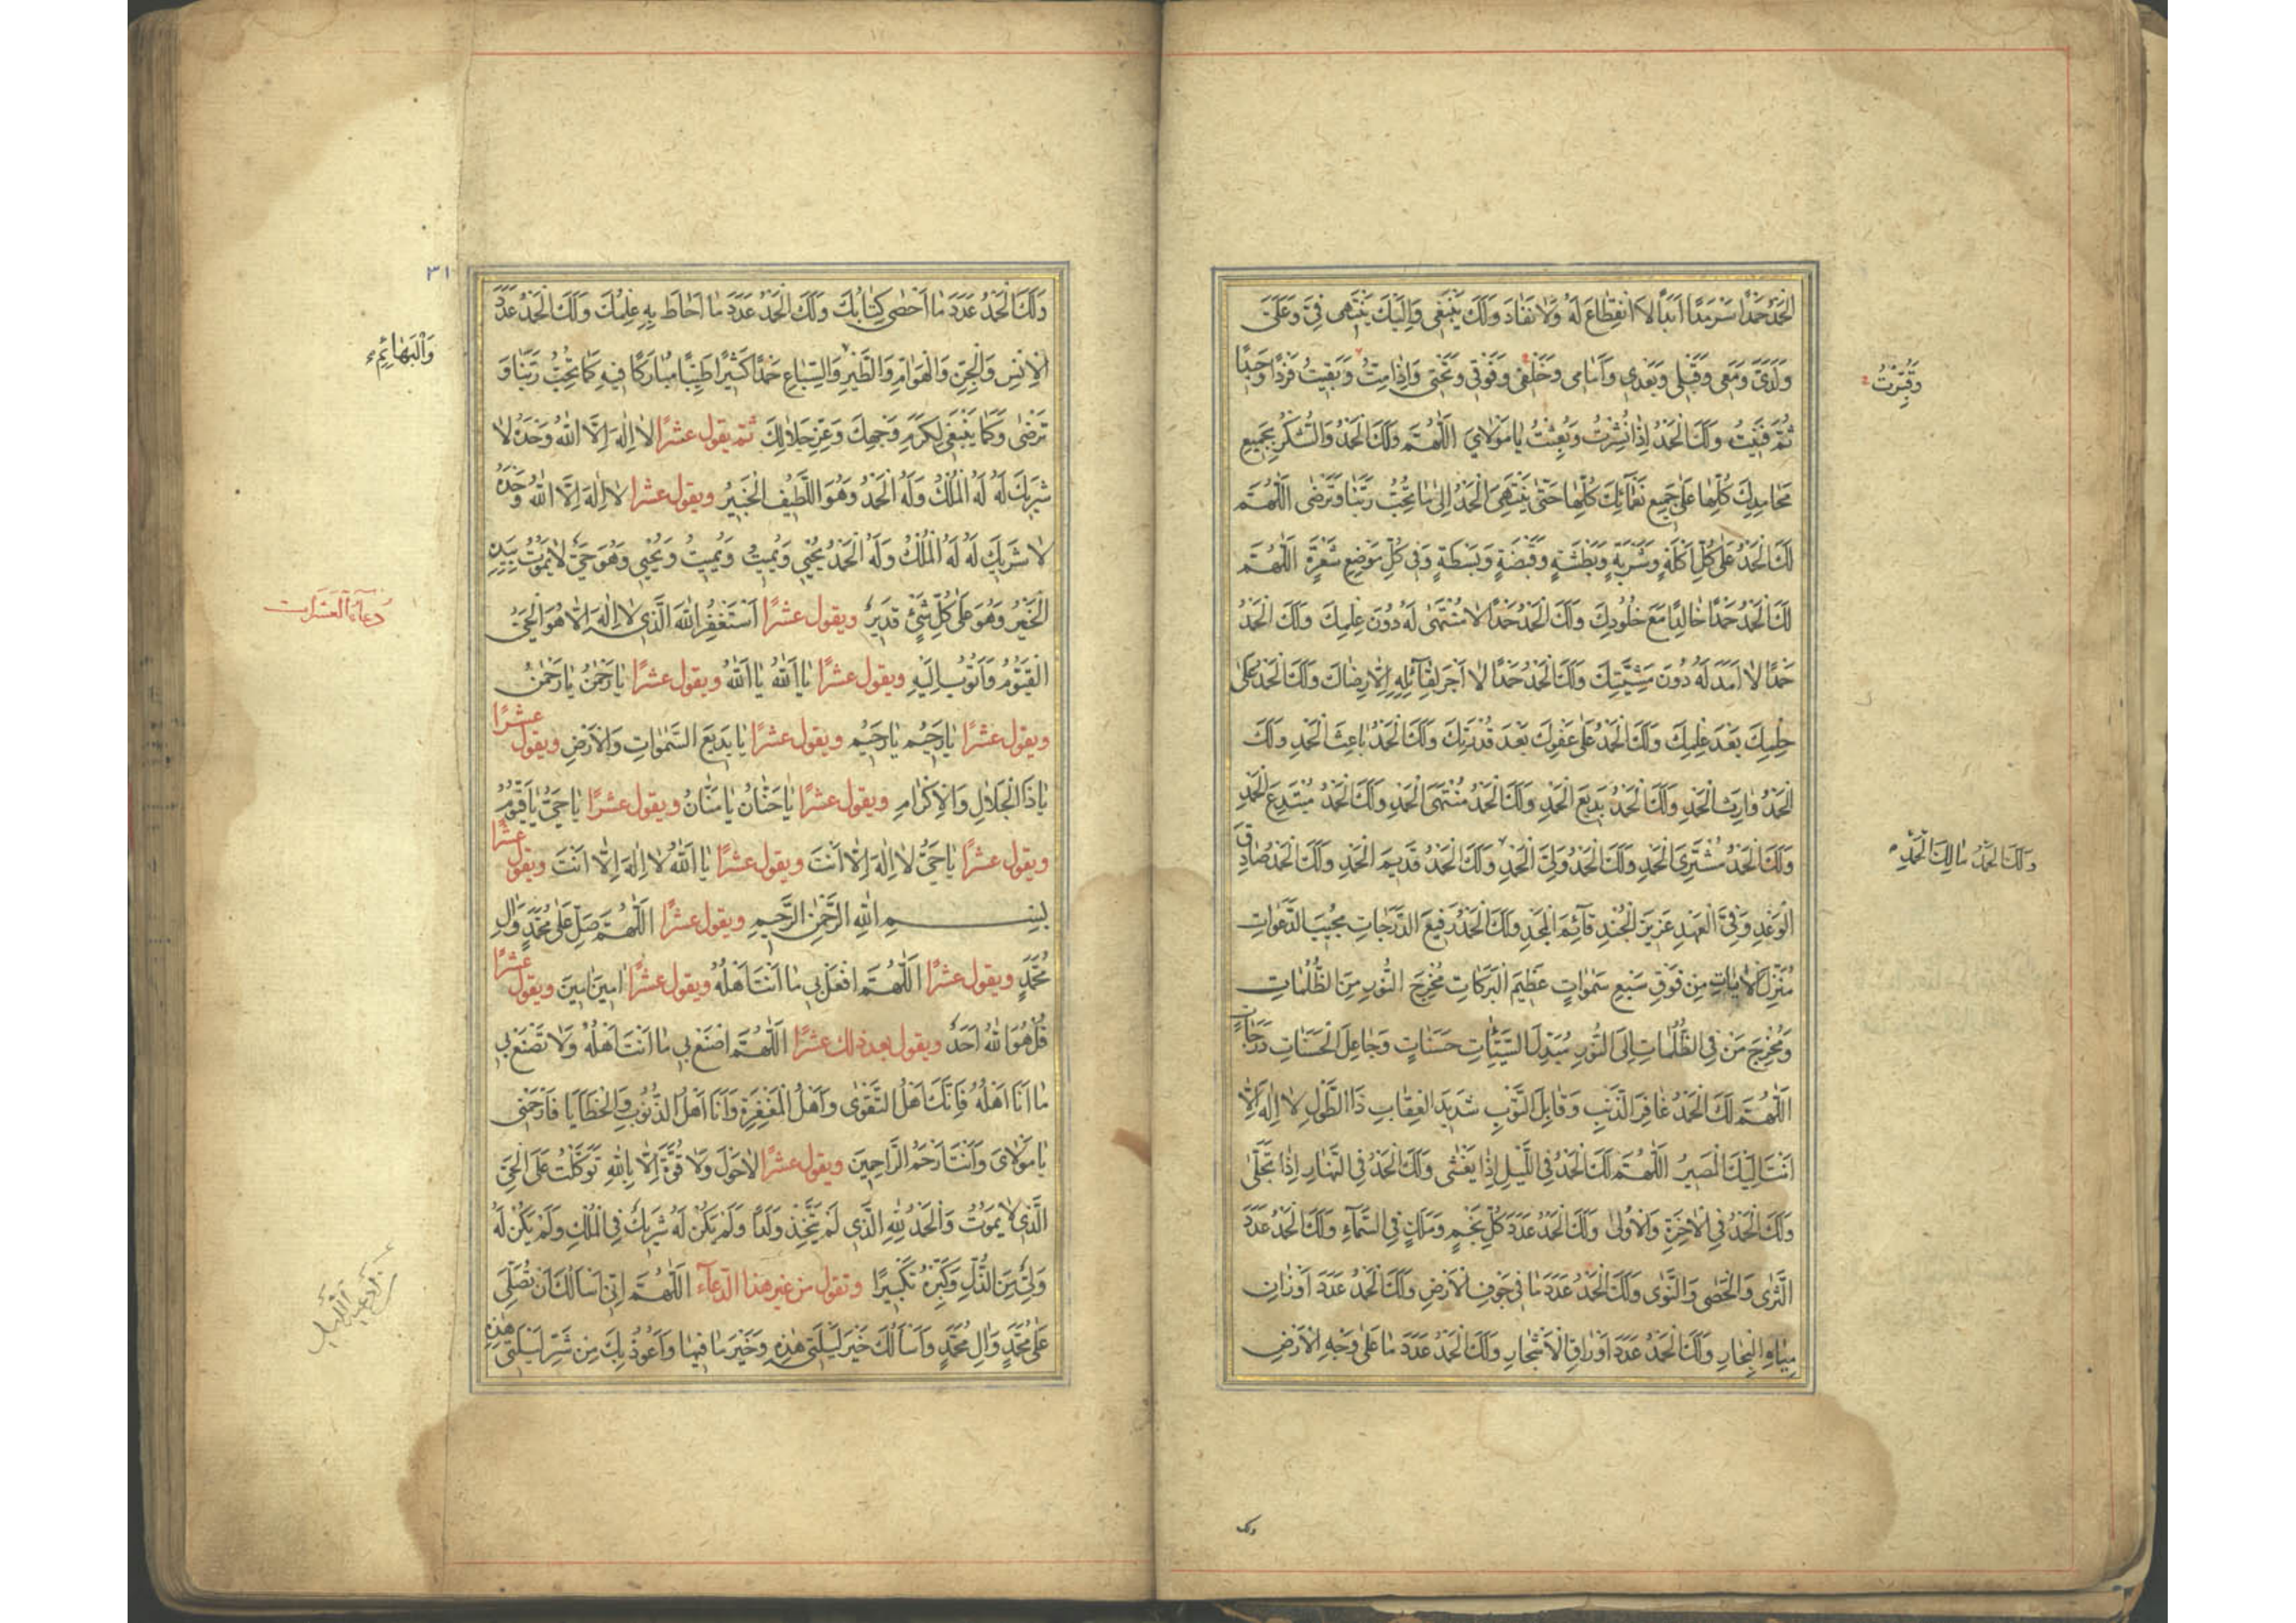 الْحَمْدُ حَمْدًا سَرْمَدًا اَبَدًا لَا انْقِطَاعَ لَهُ وَلَا نَفَادَ وَلَكَ يَنْبَغِي وَاِلَيْكَ يَنْتَهِي فِيَّ وَعَلَيَّ
وَلَدَيَّ وَمَعِي وَقَبْلِي وَبَعْدِي وَاَمَامِي وَخَلْفِي وَفَوْقِي وَتَحْتِي وَاِذَا مِتُّ وَبَقِيتُ فَرْدًا وَحِيدًا
وَقُبِرْتُ
ثُمَّ فَنِيتُ وَلَكَ الْحَمْدُ اِذَا نُشِرْتُ وَبُعِثْتُ يَا مَوْلَايَ اَللّٰهُمَّ وَلَكَ الْحَمْدُ وَالشُّكْرُ بِجَمِيعِ
مَحَامِدِكَ كُلِّهَا عَلَى جَمِيعِ نَعْمَائِكَ كُلِّهَا حَتَّى يَنْتَهِيَ الْحَمْدُ اِلَى مَا تُحِبُّ رَبَّنَا وَتَرْضَى اَللّٰهُمَّ
لَكَ الْحَمْدُ عَلَى كُلِّ اَكْلَةٍ وَشَرْبَةٍ وَبَطْشَةٍ وَقَبْضَةٍ وَبَسْطَةٍ وَفِي كُلِّ مَوْضِعِ شَعْرَةٍ اَللّٰهُمَّ
لَكَ الْحَمْدُ حَمْدًا خَالِدًا مَعَ خُلُودِكَ وَلَكَ الْحَمْدُ حَمْدًا لَا مُنْتَهَى لَهُ دُونَ عِلْمِكَ وَلَكَ الْحَمْدُ
حَمْدًا لَا اَمَدَ لَهُ دُونَ مَشِيَّتِكَ وَلَكَ الْحَمْدُ حَمْدًا لَا اَجْرَ لِقَائِلِهِ اِلَّا رِضَاكَ وَلَكَ الْحَمْدُ عَلَى
حِلْمِكَ بَعْدَ عِلْمِكَ وَلَكَ الْحَمْدُ عَلَى عَفْوِكَ بَعْدَ قُدْرَتِكَ وَلَكَ الْحَمْدُ بَاعِثَ الْحَمْدِ وَلَكَ
الْحَمْدُ وَارِثَ الْحَمْدِ وَلَكَ الْحَمْدُ بَدِيعَ الْحَمْدِ وَلَكَ الْحَمْدُ مُنْتَهَى الْحَمْدِ وَلَكَ الْحَمْدُ مُبْتَدِعَ الْحَمْدِ
وَلَكَ الْحَمْدُ مُشْتَرِيَ الْحَمْدِ وَلَكَ الْحَمْدُ وَلِيَّ الْحَمْدِ وَلَكَ الْحَمْدُ قَدِيمَ الْحَمْدِ وَلَكَ الْحَمْدُ صَادِقَ
وَلَكَ الْحَمْدُ مَالِكَ الْحَمْدِ
الْوَعْدِ وَفِيَّ الْعَهْدِ عَزِيزَ الْجُنْدِ قَائِمَ الْمَجْدِ وَلَكَ الْحَمْدُ رَفِيعَ الدَّرَجَاتِ مُجِيبَ الدَّعَوَاتِ
مُنْزِلَ الْاٰيَاتِ مِنْ فَوْقِ سَبْعِ سَمٰوَاتٍ عَظِيمَ الْبَرَكَاتِ مُخْرِجَ النُّورِ مِنَ الظُّلُمَاتِ
وَمُخْرِجَ مَنْ فِي الظُّلُمَاتِ اِلَى النُّورِ مُبَدِّلَ السَّيِّئَاتِ حَسَنَاتٍ وَجَاعِلَ الْحَسَنَاتِ دَرَجَاتٍ
اَللّٰهُمَّ لَكَ الْحَمْدُ غَافِرَ الذَّنْبِ وَقَابِلَ التَّوْبِ شَدِيدَ الْعِقَابِ ذَا الطَّوْلِ لَا اِلٰهَ اِلَّا
اَنْتَ اِلَيْكَ الْمَصِيرُ اَللّٰهُمَّ لَكَ الْحَمْدُ فِي اللَّيْلِ اِذَا يَغْشَى وَلَكَ الْحَمْدُ فِي النَّهَارِ اِذَا تَجَلَّى
وَلَكَ الْحَمْدُ فِي الْاٰخِرَةِ وَالْاُولَى وَلَكَ الْحَمْدُ عَدَدَ كُلِّ نَجْمٍ وَمَلَكٍ فِي السَّمَاءِ وَلَكَ الْحَمْدُ عَدَدَ
الثَّرَى وَالْحَصَى وَالنَّوَى وَلَكَ الْحَمْدُ عَدَدَ مَا فِي جَوْفِ الْاَرْضِ وَلَكَ الْحَمْدُ عَدَدَ اَوْزَانِ
مِيَاهِ الْبِحَارِ وَلَكَ الْحَمْدُ عَدَدَ اَوْرَاقِ الْاَشْجَارِ وَلَكَ الْحَمْدُ عَدَدَ مَا عَلَى وَجْهِ الْاَرْضِ
ولك
٣١
وَلَكَ الْحَمْدُ عَدَدَ مَا اَحْصَى كِتَابُكَ وَلَكَ الْحَمْدُ عَدَدَ مَا اَحَاطَ بِهِ عِلْمُكَ وَلَكَ الْحَمْدُ عَدَدَ
الْاِنْسِ وَالْجِنِّ وَالْهَوَامِّ وَالطَّيْرِ وَالسِّبَاعِ حَمْدًا كَثِيرًا طَيِّبًا مُبَارَكًا فِيهِ كَمَا تُحِبُّ رَبَّنَا وَ
وَالْبَهَائِمِ
تَرْضَى وَكَمَا يَنْبَغِي لِكَرَمِ وَجْهِكَ وَعِزِّ جَلَالِكَ ثم يقول عشرًا لَا اِلٰهَ اِلَّا اللّٰهُ وَحْدَهُ لَا
شَرِيكَ لَهُ لَهُ الْمُلْكُ وَلَهُ الْحَمْدُ وَهُوَ اللَّطِيفُ الْخَبِيرُ ويقول عشرا لَا اِلٰهَ اِلَّا اللّٰهُ وَحْدَهُ
لَا شَرِيكَ لَهُ لَهُ الْمُلْكُ وَلَهُ الْحَمْدُ يُحْيِي وَيُمِيتُ وَيُمِيتُ وَيُحْيِي وَهُوَ حَيٌّ لَا يَمُوتُ بِيَدِهِ
الْخَيْرُ وَهُوَ عَلَى كُلِّ شَيْءٍ قَدِيرٌ ويقول عشرًا اَسْتَغْفِرُ اللّٰهَ الَّذِي لَا اِلٰهَ اِلَّا هُوَ الْحَيُّ
دُعَاءُ الْعَشَرَات
الْقَيُّومُ وَاَتُوبُ اِلَيْهِ ويقول عشرًا يَا اَللّٰهُ يَا اَللّٰهُ ويقول عشرًا يَا رَحْمٰنُ يَا رَحْمٰنُ
ويقول عشرًا يَا رَحِيمُ يَا رَحِيمُ ويقول عشرًا يَا بَدِيعَ السَّمٰوَاتِ وَالْاَرْضِ ويقول عشرًا
يَا ذَا الْجَلَالِ وَالْاِكْرَامِ ويقول عشرًا يَا حَنَّانُ يَا مَنَّانُ ويقول عشرًا يَا حَيُّ يَا قَيُّومُ
ويقول عشرًا يَا حَيُّ لَا اِلٰهَ اِلَّا اَنْتَ ويقول عشرًا يَا اَللّٰهُ لَا اِلٰهَ اِلَّا اَنْتَ ويقول عشرًا
بِسْمِ اللّٰهِ الرَّحْمٰنِ الرَّحِيمِ ويقول عشرًا اَللّٰهُمَّ صَلِّ عَلَى مُحَمَّدٍ وَاٰلِ
مُحَمَّدٍ ويقول عشرًا اَللّٰهُمَّ افْعَلْ بِي مَا اَنْتَ اَهْلُهُ ويقول عشرًا اٰمِينَ اٰمِينَ ويقول عشرًا
قُلْ هُوَ اللّٰهُ اَحَدٌ ويقول بعد ذلك عشرًا اَللّٰهُمَّ اصْنَعْ بِي مَا اَنْتَ اَهْلُهُ وَلَا تَصْنَعْ بِي
مَا اَنَا اَهْلُهُ فَاِنَّكَ اَهْلُ التَّقْوَى وَاَهْلُ الْمَغْفِرَةِ وَاَنَا اَهْلُ الذُّنُوبِ وَالْخَطَايَا فَارْحَمْنِي
يَا مَوْلَايَ وَاَنْتَ اَرْحَمُ الرَّاحِمِينَ ويقول عشرًا لَا حَوْلَ وَلَا قُوَّةَ اِلَّا بِاللّٰهِ تَوَكَّلْتُ عَلَى الْحَيِّ
الَّذِي لَا يَمُوتُ وَالْحَمْدُ لِلّٰهِ الَّذِي لَمْ يَتَّخِذْ وَلَدًا وَلَمْ يَكُنْ لَهُ شَرِيكٌ فِي الْمُلْكِ وَلَمْ يَكُنْ لَهُ
وَلِيٌّ مِنَ الذُّلِّ وَكَبِّرْهُ تَكْبِيرًا وتقول من غير هذا الدعاء اَللّٰهُمَّ اِنِّي اَسْاَلُكَ اَنْ تُصَلِّيَ
عَلَى مُحَمَّدٍ وَاٰلِ مُحَمَّدٍ وَاَسْاَلُكَ خَيْرَ لَيْلَتِي هٰذِهِ وَخَيْرَ مَا فِيهَا وَاَعُوذُ بِكَ مِنْ شَرِّ لَيْلَتِي هٰذِهِ